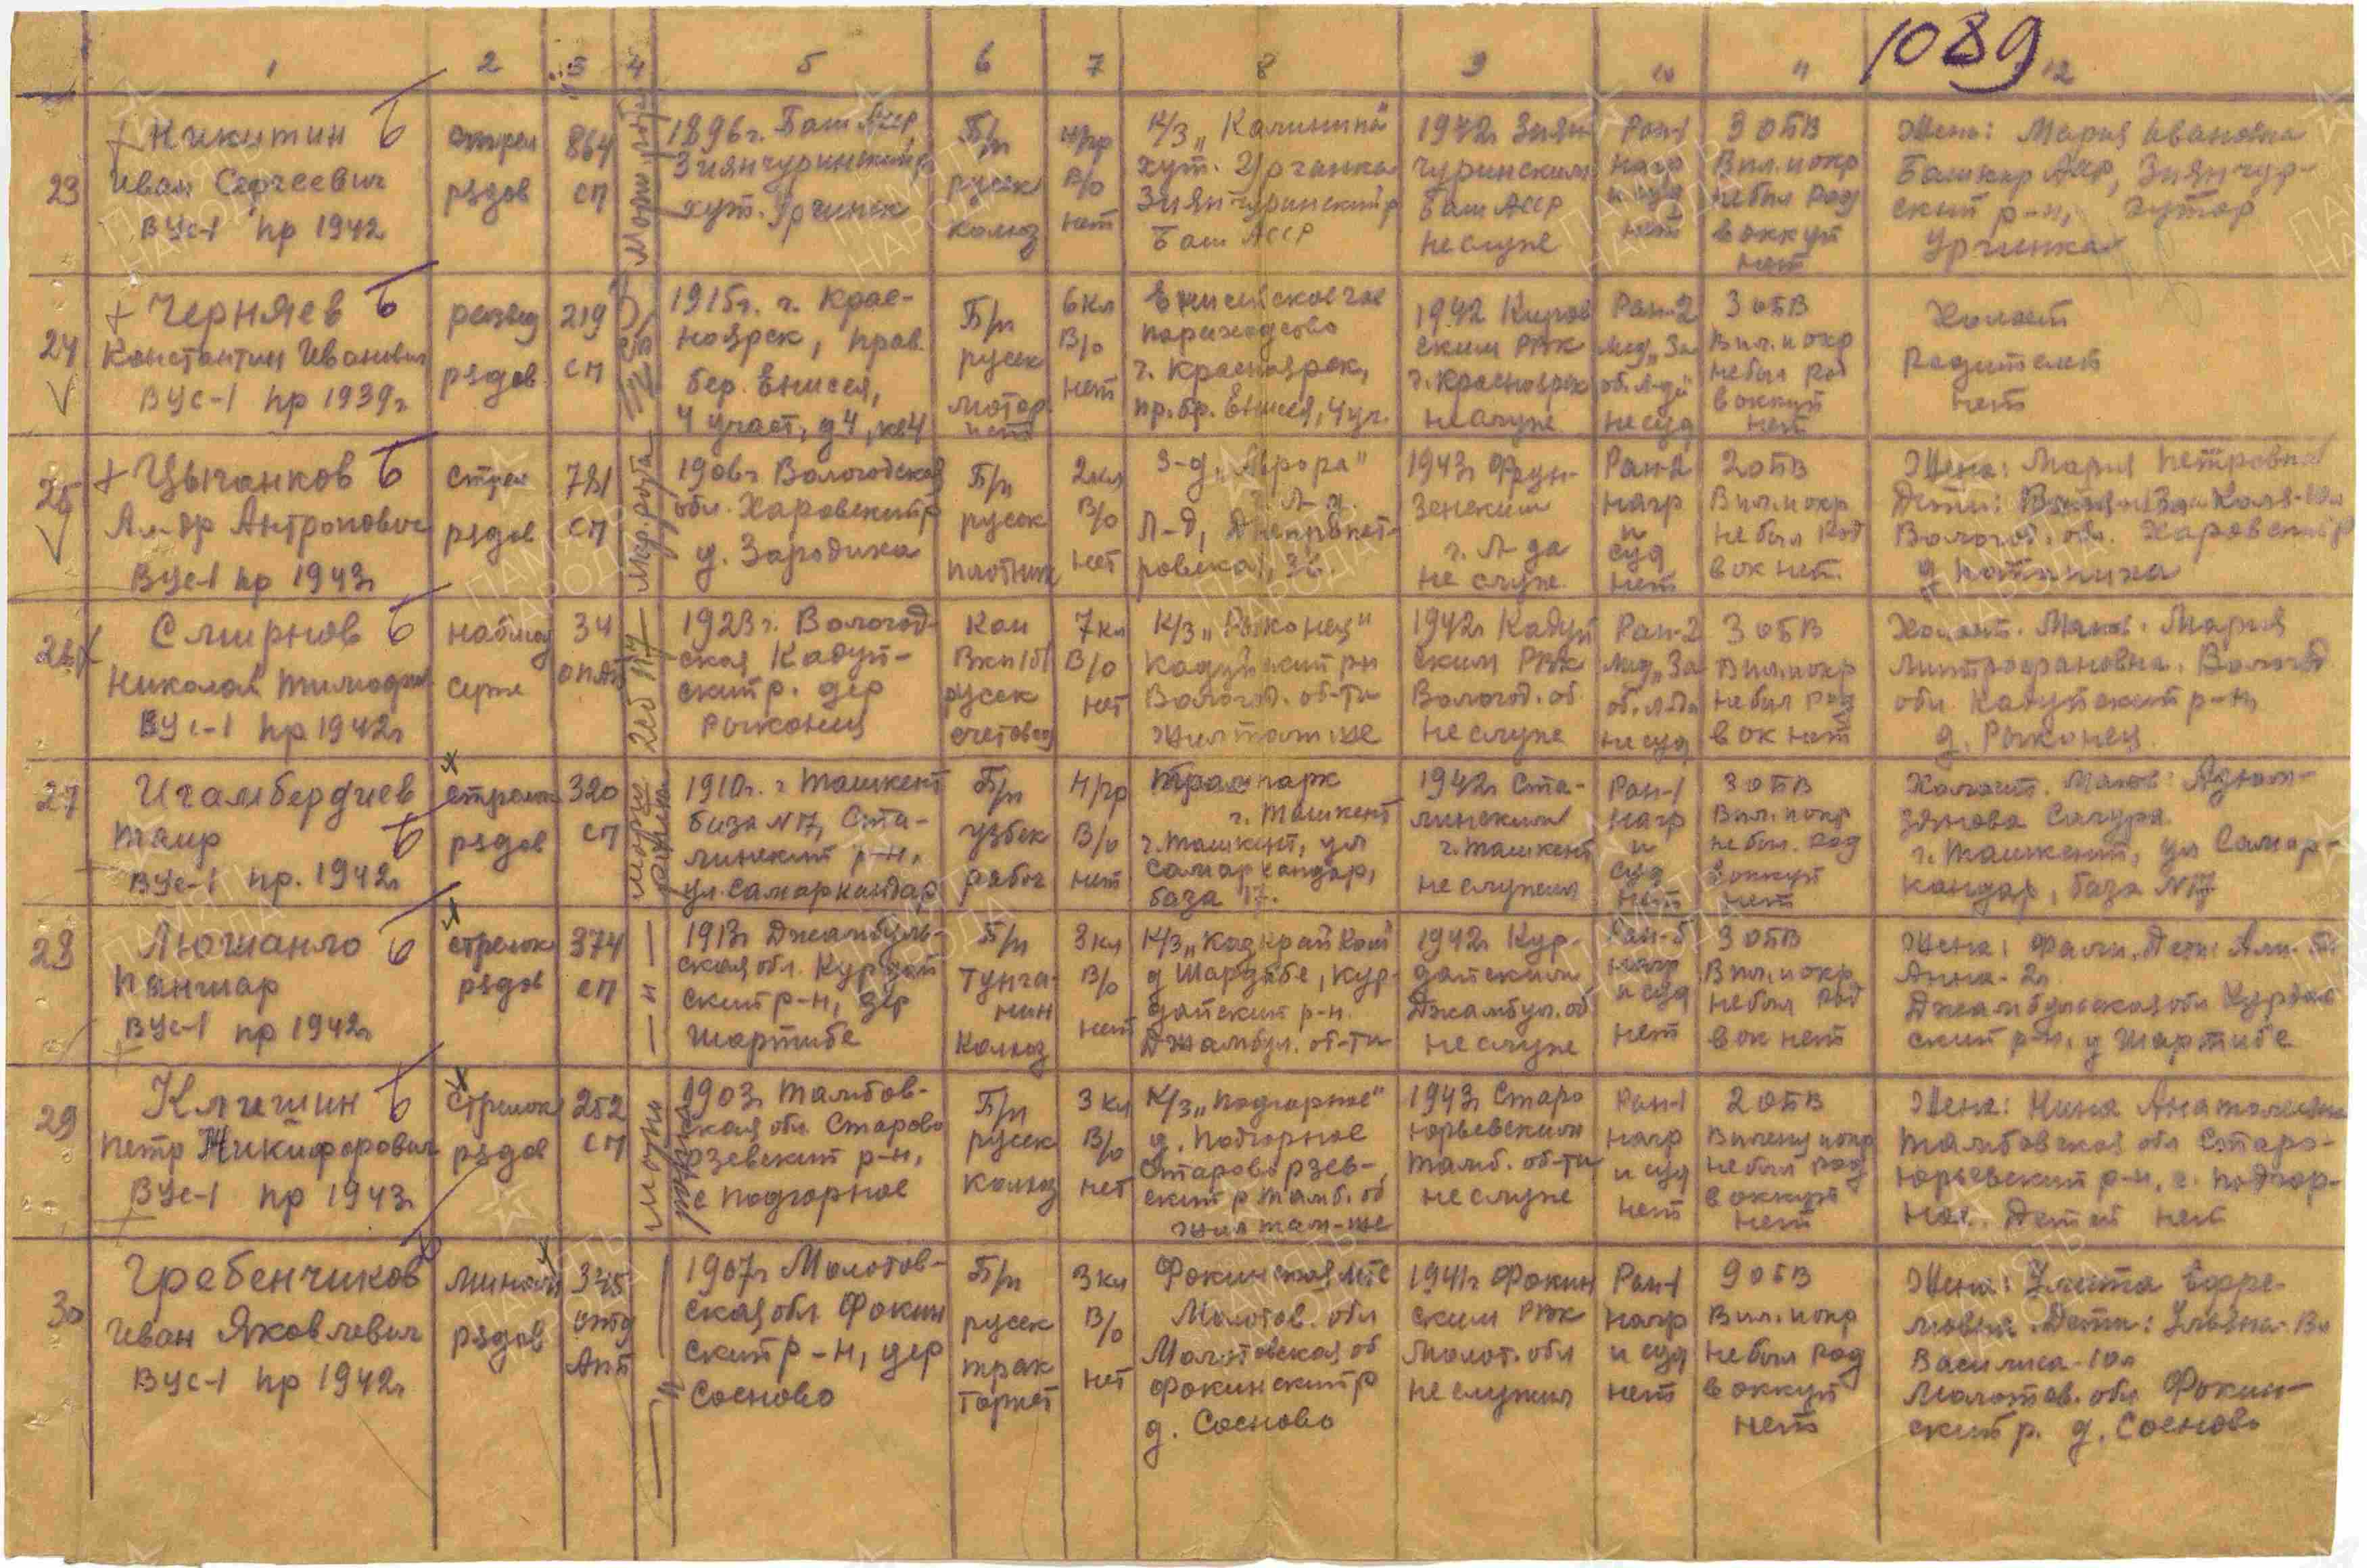 1089
1 2 3 4 5 6 7 8 9 10 11 12
23
Никитин Б
Иван Сергеевич
ВУс-1 пр 1942
стрел
рядов
864
сп
1896г. Баш АССР
Зиянчуринский р
хут. Ургинск
Б/п
русск
колхоз
н/гр
в/о
нет
К/з „Калинина"
хут. Урганка
Зиянчуринский р
Баш АССР
1942г Зиян
чуринским
Баш АССР
не служ
Ран-1
нагр
и суд
нет
3 ОПВ
В пл. и окр
не был род
в оккуп
нет
Жена: Мария Ивановна
Башкир АССР, Зиянчур-
ский р-н, хутор
Ургинка
24
Черняев Б
Константин Иванович
ВУс-1 пр 1939г
развед
рядов
219
сп
1915г. г. Крас-
ноярск, прав.
бер. Енисея,
4 участ, д 4, кв 4
Б/п
русск
мотор
ист
6 кл
в/о
нет
Енисейское гос
пароходство
г. Красноярск,
пр. бр. Енисея, 4 уч.
1942 Киров
ским РВК
г. Красноярск
не служ
Ран-2
мед „За
об. Л-да"
не суд
3 ОПВ
В пл. и окр
не был род
в оккуп
нет
Холост
Родителей
нет
25
Цыганков Б
Ал-др Антропович
ВУс-1 пр 1943г
стрел
рядов
781
сп
1906г Вологодская
обл. Харовский р
д. Зародиха
Б/п
русск
плотник
2 кл
в/о
нет
З-д „Аврора"
г. Л-д.
Л-д, Днепропет-
ровская, 36.
1943г Фрун-
зенским
г. Л-да
не служ
Ран-2
нагр
и
суд
нет
2 ОПВ
В пл. и окр
не был род
в ок нет.
Жена: Мария Петровна
Дети: Коля-10л
Вологод. обл. Харовский р
26
Смирнов Б
Николай
ВУс-1 пр 1942г
наблюд
серж
34
1923г. Вологод-
ская Кадуй-
ский р. дер
Рыконец
Кан
ВКП/б/
русск
счетовод
7 кл
в/о
нет
К/з „Рыконец"
Кадуйский рн
Вологод. об-ти
жил там же
1942г Кадуй
ским РВК
Вологод. об.
не служ
Ран-2
мед „За
об. Л-да
не суд
3 ОПВ
В пл. и окр
не был род
в ок нет
Холост. Мать: Мария
Митрофановна. Вологод
обл. Кадуйский р-н,
д. Рыконец
27
Игамбердиев
Таир Б
ВУс-1 пр. 1942г
стрелок
рядов
320
сп
1910г. г Ташкент
база №17, Ста-
линский р-н,
ул. Самаркандар
Б/п
узбек
рабоч
н/гр
в/о
нет
Трампарк
г. Ташкент
г. Ташкент, ул
Самаркандар,
база 17.
1942г Ста-
линским
г. Ташкент
не служил
Ран-1
нагр
и
суд
нет
3 ОПВ
В пл. и окр
не был. род
в оккуп
нет
Холост. Мать:
г. Ташкент, ул Самар-
кандар, база №17
28
Люшанло Б
ВУс-1 пр 1942г
стрелок
рядов
374
сп
1913г Джамбуль-
ская обл. Курдай
ский р-н, дер
Шортибе
Б/п
Тунга-
нин
колхоз
3 кл
в/о
нет
д Шортюбе, Кур-
дайский р-н.
Джамбул. об-ти
1942г Кур-
дайским
Джамбул. об
не служ
нагр
и суд
нет
3 ОПВ
В пл. и окр
не был род
в ок нет
Анна-2г
Джамбульская обл Курдай
ский р-н, д Шортибе
29
Клишин Б
Петр Никифорович
ВУс-1 пр 1943г
стрелок
рядов
252
сп
1903г Тамбов-
ская обл. Старово
рзевский р-н,
с Подгорное
Б/п
русск
колхоз
3 кл
в/о
нет
К/з „Подгорное"
д. Подгорное
Староворзев-
ский р Тамб. об
жил там-же
1943г Старо
юрьевским
Тамб. об-ти
не служ
Ран-1
нагр
и суд
нет
2 ОПВ
В плену и окр
не был род
в оккуп
нет
Жена: Нина Анатольевна
Тамбовская обл Старо-
юрьевский р-н, с. Подгор-
ное. Детей нет
30
Гребенчиков Б
Иван Яковлевич
ВУс-1 пр 1942г
рядов
345
1907г Молотов-
ская обл Фокин
ский р-н, дер
Сосново
Б/п
русск
трак
торист
3 кл
в/о
нет
Фокинская МТС
Молотов. обл
Молотовская об
Фокинский р
д. Сосново
1941г Фокин
ским РВК
Молот. обл
не служил
Ран-1
нагр
и суд
нет
9 ОПВ
В пл. и окр
не был род
в оккуп
нет
Жена: Улита Ефре-
мовна. Дети:
Василиса-10л
Молотов. обл Фокин-
ский р. д. Сосново
ПАМЯТЬ
НАРОДА